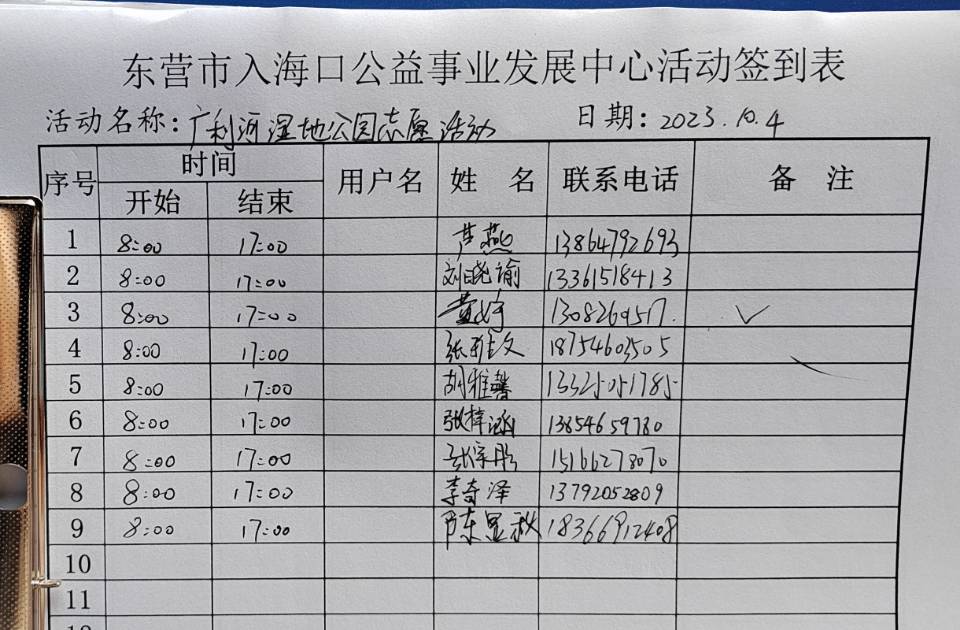 东营市入海口公益事业发展中心活动签到表
活动名称：广利河湿地公园志愿活动 日期：2023.10.4
序号 时间 用户名 姓 名 联系电话 备 注
开始 结束
1 8:00 17:00 芦燕 13864792693
2 8:00 17:00 刘晓谕 13361518413
3 8:00 17:00 黄婷
4 8:00 17:00 张雅文 18754603505
5 8:00 17:00 胡雅馨
6 8:00 17:00 张梓涵 13854659780
7 8:00 17:00 15166278070
8 8:00 17:00 李奇泽 13792052809
9 8:00 17:00 陈显秋 18366912408
10
11